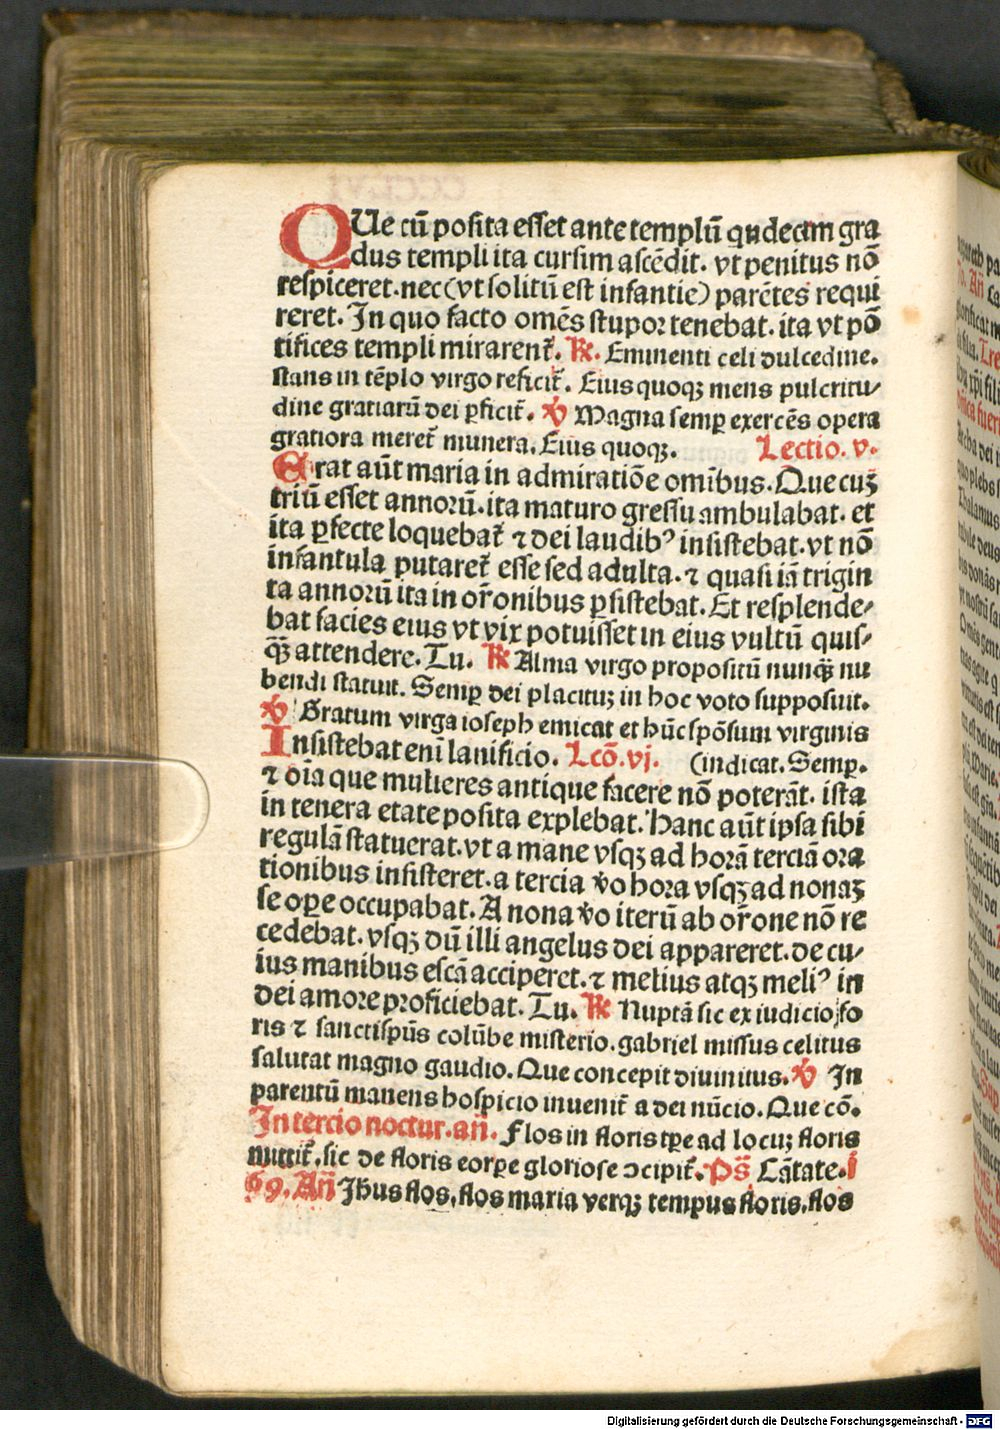 QUe cū posita esset ante templū qndecim gra
dus templi ita cursim ascēdit. vt penitus nō
respiceret. nec (vt solitū est infantie) parētes requi
reret. In quo facto omēs stupor tenebat. ita vt pō
tifices templi mirarent̄. ℟. Eminenti celi dulcedine.
stans in tēplo virgo reficit̄. Eius quoqꝫ mens pulcritu⸗
dine gratiarū dei ꝑficit̄. ℣ Magna semꝑ exercēs opera
gratiora meret̄ munera. Eius quoqꝫ. Lectio. v.
Erat aūt maria in admiratiōe omībus. Que cuꝫ
triū esset annorū. ita maturo gressu ambulabat. et
ita ꝑfecte loquebat̄ ⁊ dei laudibꝰ insistebat. vt nō
infantula putaret̄ esse sed adulta. ⁊ quasi iā trigin
ta annorū ita in or̄onibus ꝑsistebat. Et resplende⸗
bat facies eius vt vix potuisset in eius vultū quis⸗
q̄ꝫ attendere. Tu. ℟ Alma virgo propositū nunq̄ꝫ nu
bendi statuit. Semꝑ dei placituꝫ in hoc voto supposuit.
℣ Gratum virga ioseph emicat et hūc spōsum virginis
Insistebat enī lanificio. Lcō. vj. (indicat. Semꝑ.
⁊ oīa que mulieres antique facere nō poterāt. ista
in tenera etate posita explebat. Hanc aūt ipsa sibi
regulā statuerat. vt a mane vsqꝫ ad horā terciā ora
tionibus insisteret. a tercia v̄o hora vsqꝫ ad nonaꝫ
se oꝑe occupabat. A nona v̄o iterū ab or̄one nō re
cedebat. vsqꝫ dū illi angelus dei appareret. de cu⸗
ius manibus escā acciperet. ⁊ melius atqꝫ meliꝰ in
dei amore proficiebat. Tu. ℟ Nuptā sic ex iudicio fo
ris ⁊ sancti sp̄us colūbe misterio. gabriel missus celitus
salutat magno gaudio. Que concepit diuinitus. ℣ In
parentū manens hospicio inuenit̄ a dei nūcio. Que cō.
In tercio noctur. an̄. Flos in floris tꝑe ad locuꝫ floris
mittit̄. sic de floris corꝑe gloriose ↄcipit̄. Ps̄ Cātate. i
69. An̄ Jhus flos, flos maria verqꝫ tempus floris, flos
Digitalisierung gefördert durch die Deutsche Forschungsgemeinschaft - DFG